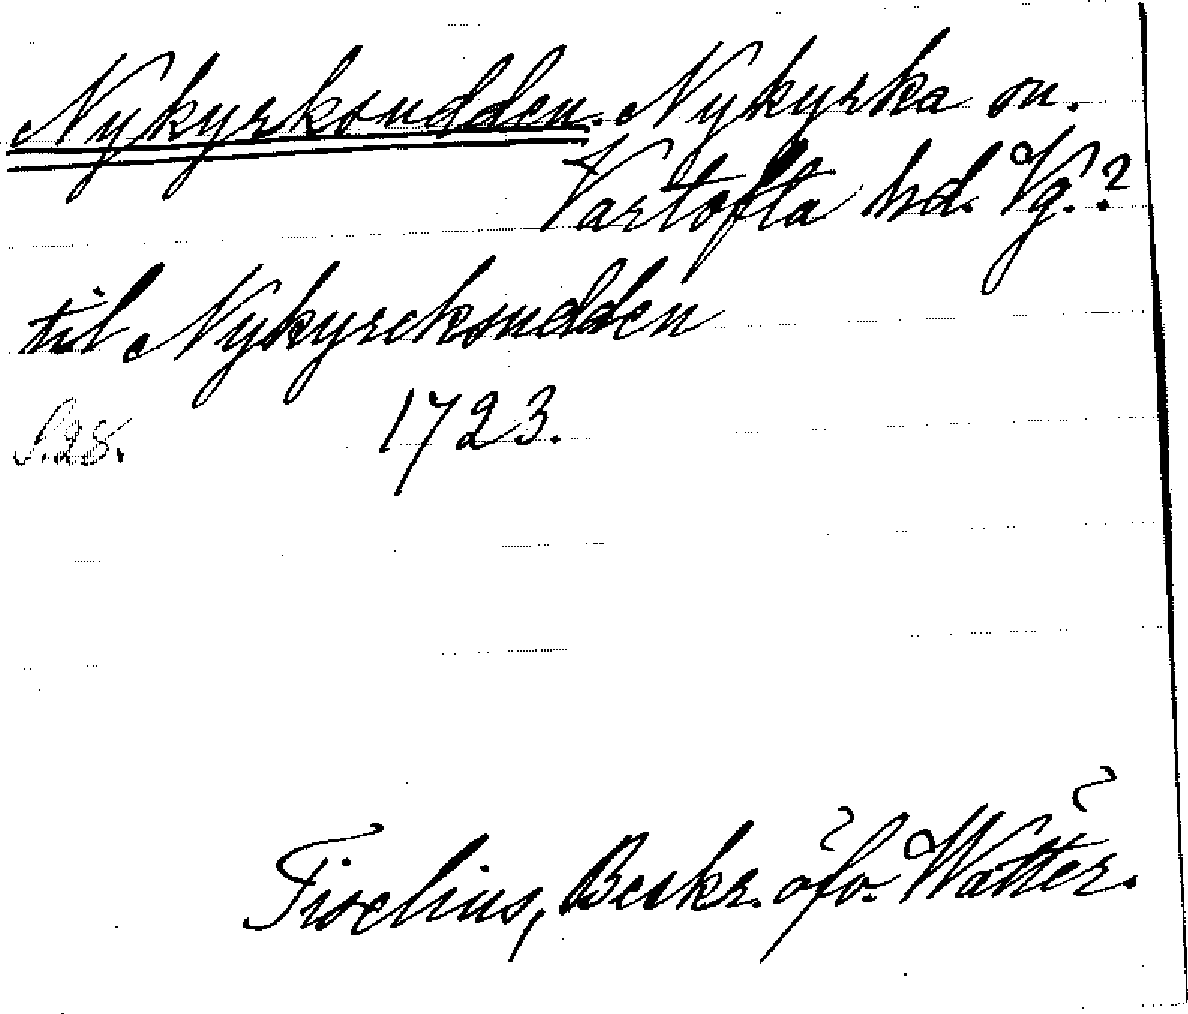 Nykyrksudden. Nykyrka sn.
Vartofta hd. Vg.?
til Nykyrcksudden
S.28. 1723.
Tiselius, Beskr. öfv. Wätter.